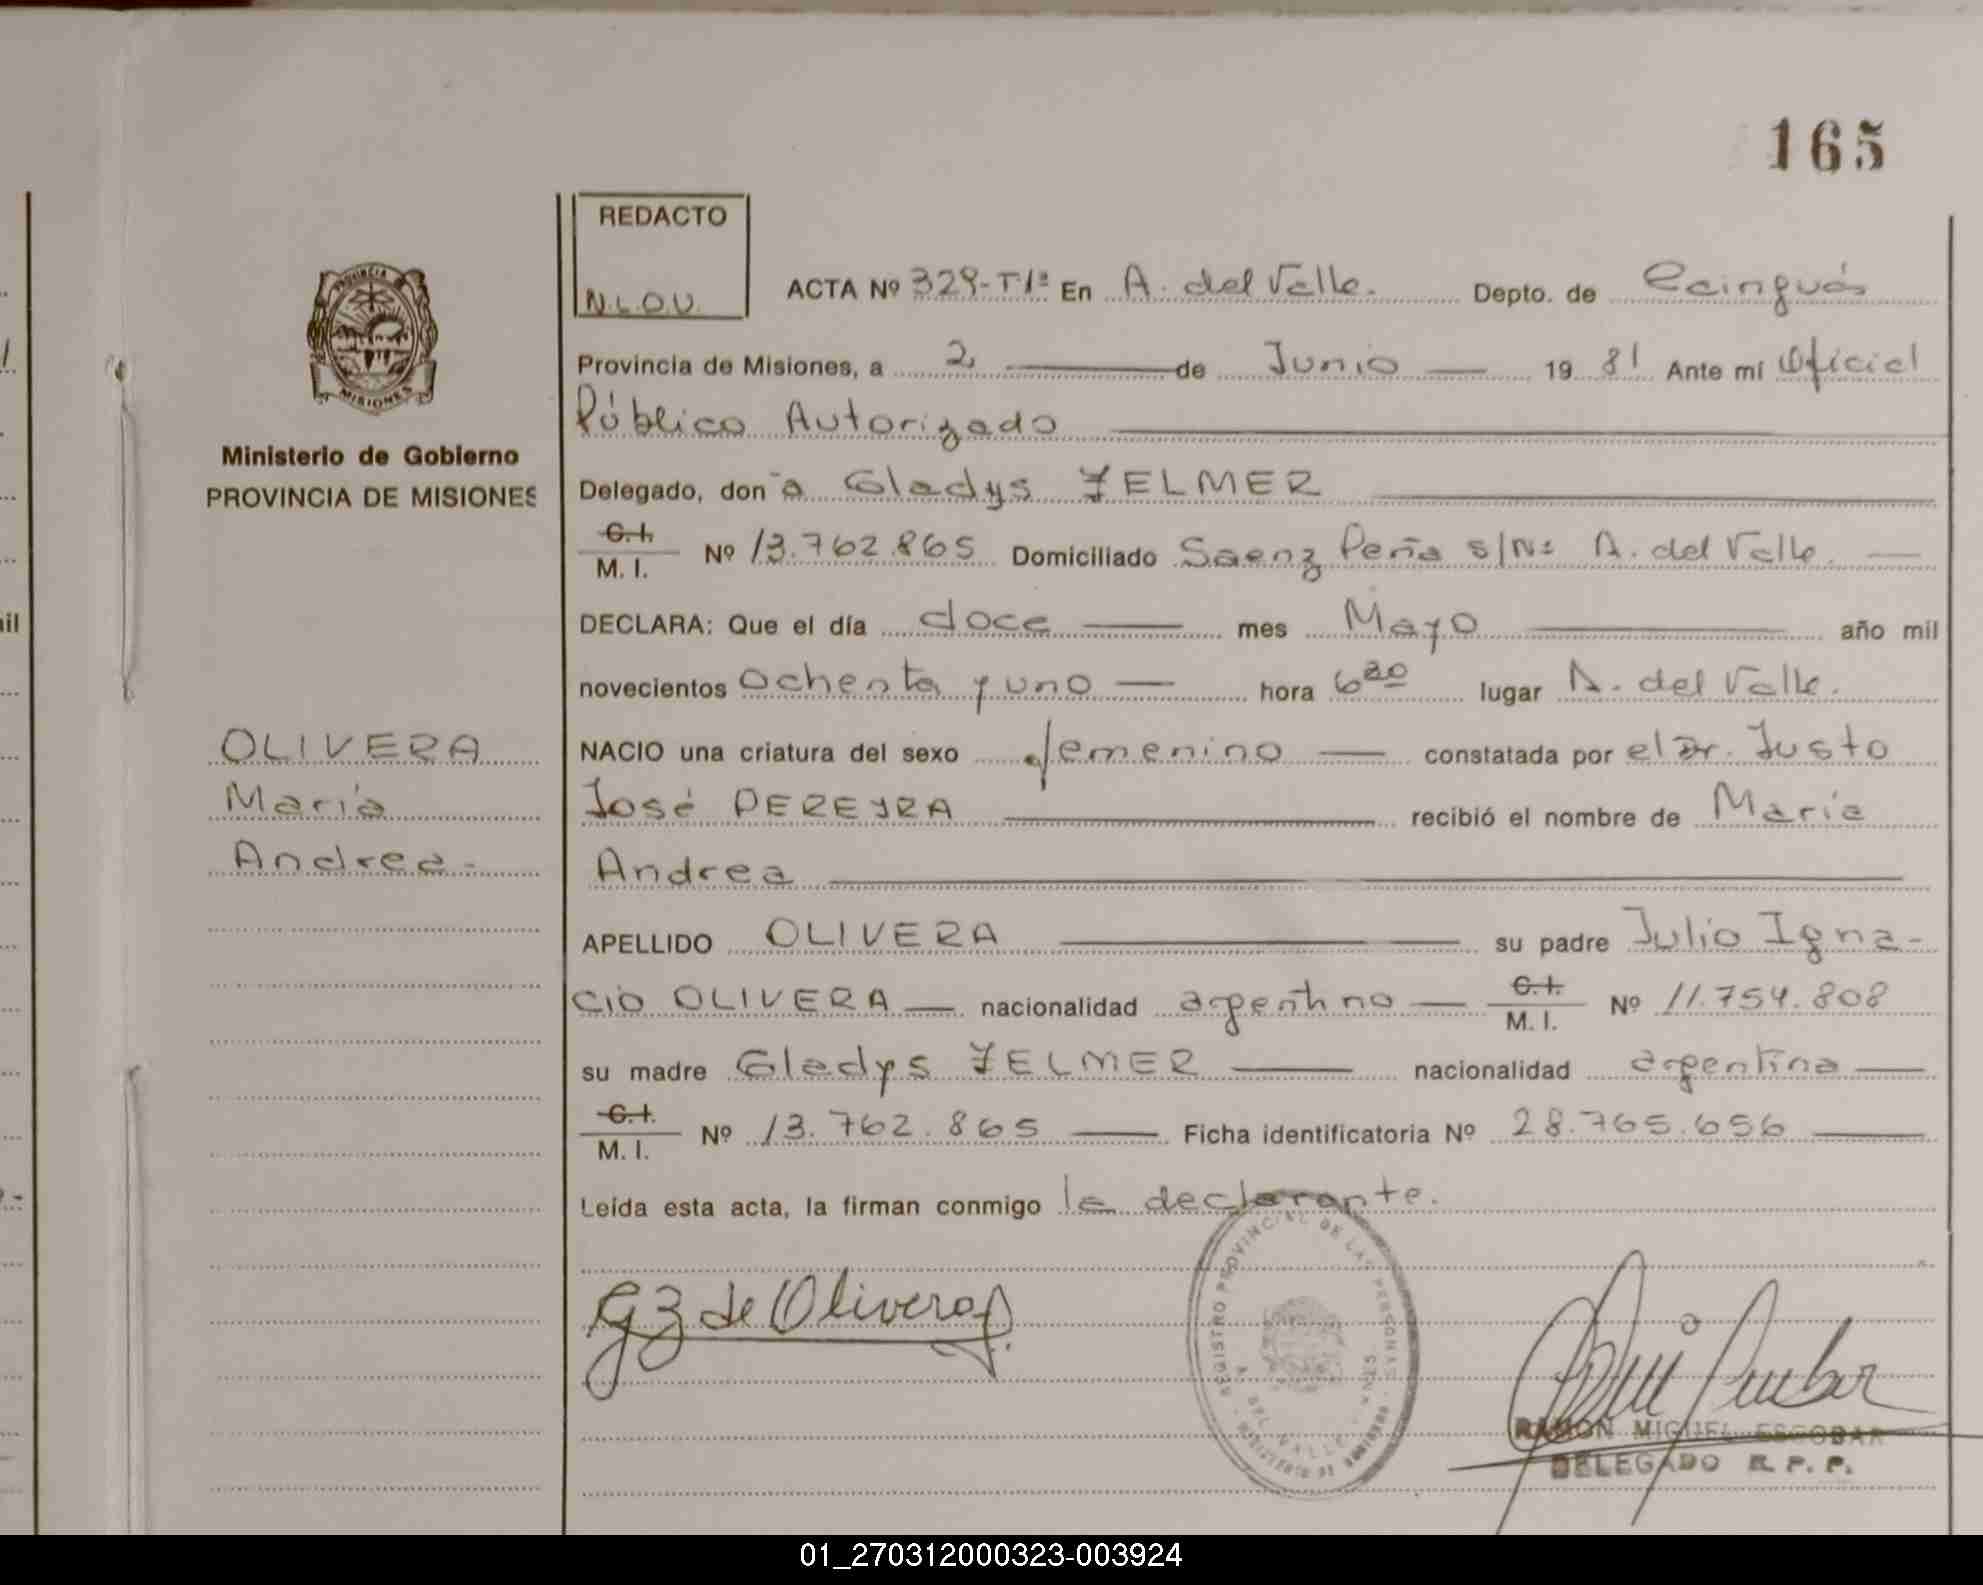 165
REDACTO
N.L.O.U.
ACTA Nº 329-T1º En A. del Valle. Depto. de Cainguás
Provincia de Misiones, a 2 de Junio 19 81 Ante mí Oficial
Público Autorizado
Ministerio de Gobierno
PROVINCIA DE MISIONES
Delegado, don a Gladys ZELMER
C.I.
M. I. Nº 13.762.865 Domiciliado Saenz Peña s/Nº A. del Valle.
DECLARA: Que el día doce mes Mayo año mil
novecientos ochenta y uno hora 6 30 lugar A. del Valle.
NACIO una criatura del sexo femenino constatada por el Dr. Justo
José PEREYRA recibió el nombre de María
Andrea
OLIVERA
María
Andrea.-
APELLIDO OLIVERA su padre Julio Igna-
cio OLIVERA nacionalidad argentino C.I.
M. I. Nº 11.754.808
su madre Gladys ZELMER nacionalidad argentina
C.I.
M. I. Nº 13.762.865 Ficha identificatoria Nº 28.765.656
Leída esta acta, la firman conmigo la declarante.
GZ de Olivera
REGISTRO PROVINCIAL DE LAS PERSONAS
A. DEL VALLE
MINISTERIO DE GOBIERNO
RAMON MIGUEL ESCOBAR
DELEGADO R. P. P.
PROVINCIA
MISIONES
01_270312000323-003924